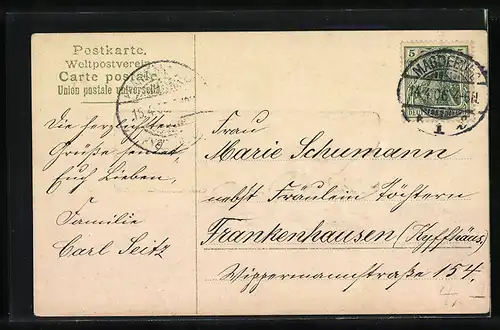 Postkarte.
Weltpostverein.
Carte postale.
Union postale universelle.
5
MAGDEBURG
14.4.06
1
Die herzlichsten
Grüße sendet
Euch Lieben,
Familie
Carl Seitz
Frau
Marie Schumann
nebst Fräulein Töchtern
Frankenhausen (Kyffhäus.)
Wippermannstraße 154.